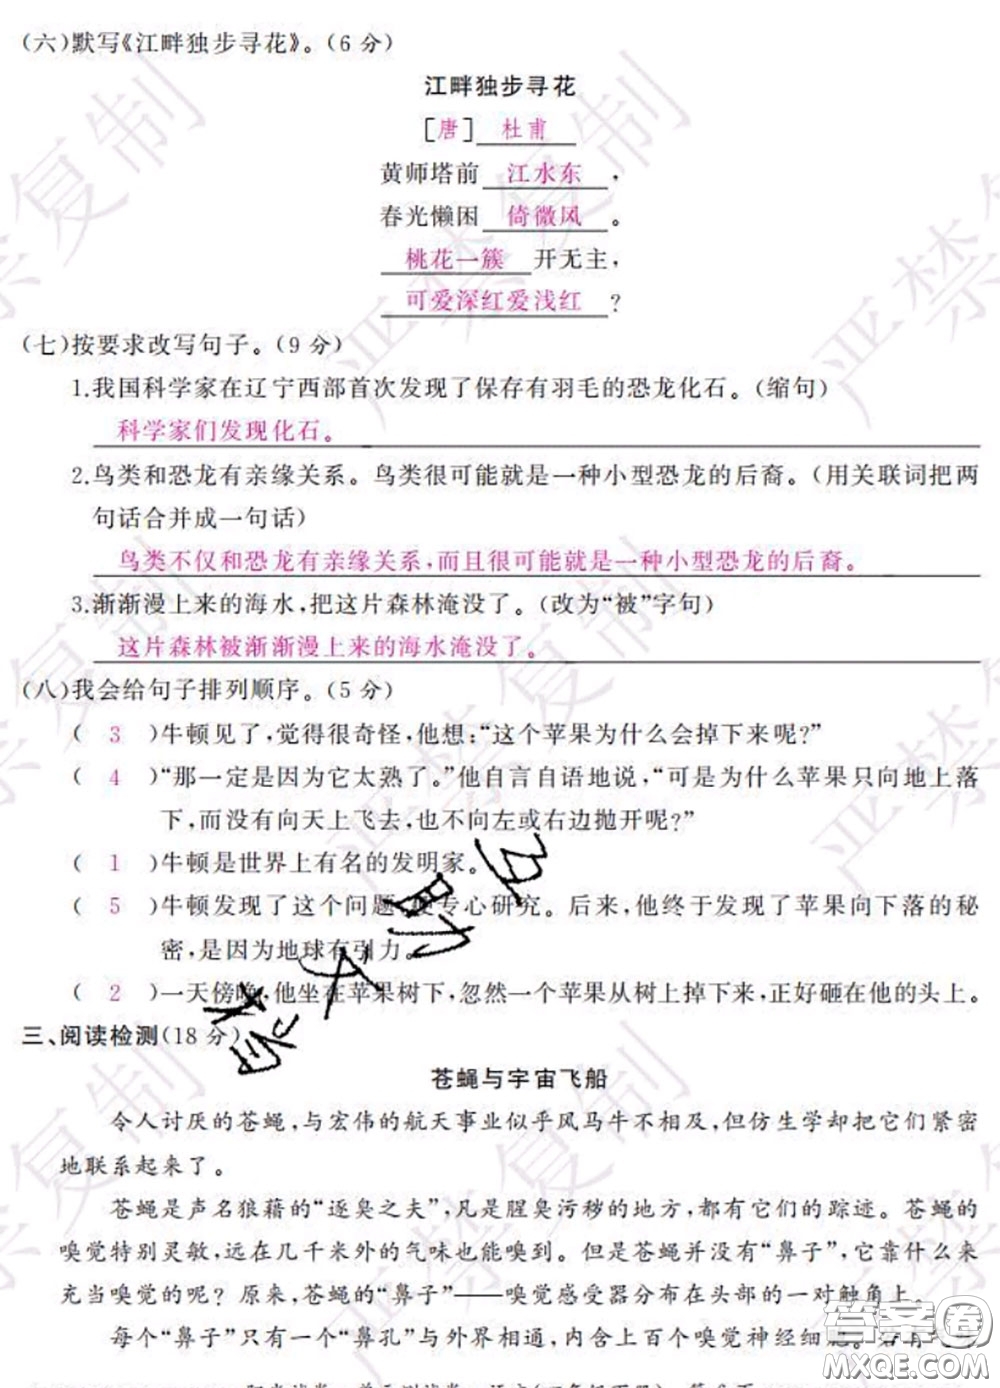 (六)默写《江畔独步寻花》。(6 分)
江畔独步寻花
[唐] 杜甫
黄师塔前 江水东 ,
春光懒困 倚微风 。
桃花一簇 开无主,
可爱深红爱浅红 ?
(七)按要求改写句子。(9 分)
1.我国科学家在辽宁西部首次发现了保存有羽毛的恐龙化石。(缩句)
科学家们发现化石。
2.鸟类和恐龙有亲缘关系。鸟类很可能就是一种小型恐龙的后裔。(用关联词把两
句话合并成一句话)
鸟类不仅和恐龙有亲缘关系,而且很可能就是一种小型恐龙的后裔。
3.渐渐漫上来的海水,把这片森林淹没了。(改为“被”字句)
这片森林被渐渐漫上来的海水淹没了。
(八)我会给句子排列顺序。(5 分)
( 3 )牛顿见了,觉得很奇怪,他想:“这个苹果为什么会掉下来呢?”
( 4 )“那一定是因为它太熟了。”他自言自语地说,“可是为什么苹果只向地上落
下,而没有向天上飞去,也不向左或右边抛开呢?”
( 1 )牛顿是世界上有名的发明家。
( 5 )牛顿发现了这个问题,便专心研究。后来,他终于发现了苹果向下落的秘
密,是因为地球有引力。
( 2 )一天傍晚,他坐在苹果树下,忽然一个苹果从树上掉下来,正好砸在他的头上。
三、阅读检测(18 分)
苍蝇与宇宙飞船
令人讨厌的苍蝇,与宏伟的航天事业似乎风马牛不相及,但仿生学却把它们紧密
地联系起来了。
苍蝇是声名狼藉的“逐臭之夫”,凡是腥臭污秽的地方,都有它们的踪迹。苍蝇的
嗅觉特别灵敏,远在几千米外的气味也能嗅到。但是苍蝇并没有“鼻子”,它靠什么来
充当嗅觉的呢? 原来,苍蝇的“鼻子”——嗅觉感受器分布在头部的一对触角上。
每个“鼻子”只有一个“鼻孔”与外界相通,内含上百个嗅觉神经细胞。若有
答案圈
MXQE.COM
严禁复制